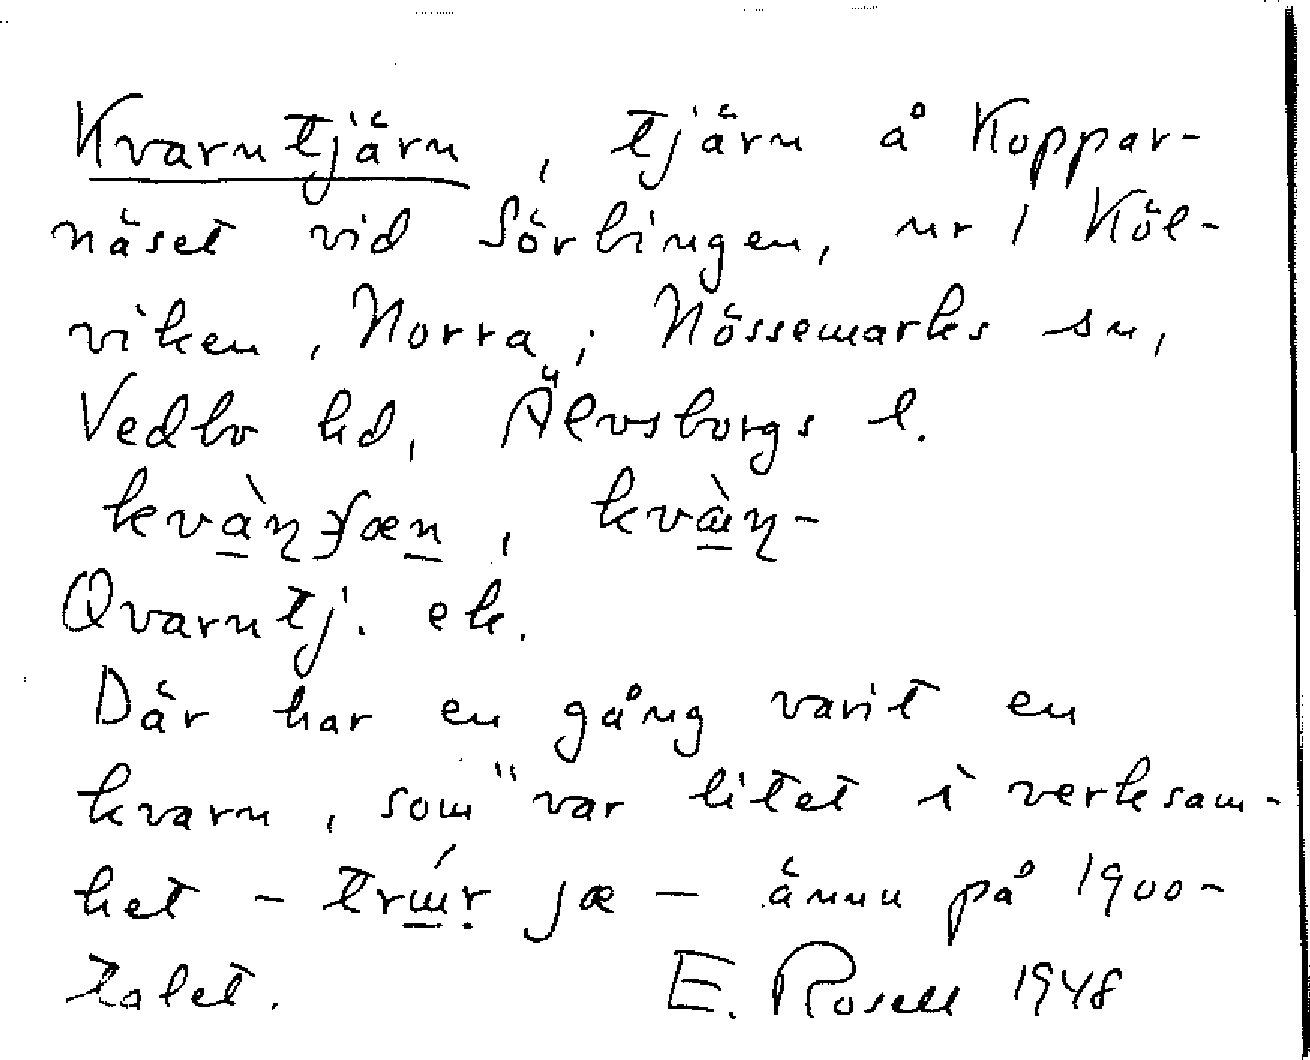 Kvarntjärn, tjärn å Koppar-
näset vid Sörbingen, nr 1 Köl-
viken, Norra; Nössemarks sn,
Vedbo hd, Älvsborgs l.
Qvarntj. ek.
Där har en gång varit en
kvarn, som "var litet i verksam-
het - jæ - ännu på 1900-
talet. E. Rosell 1948